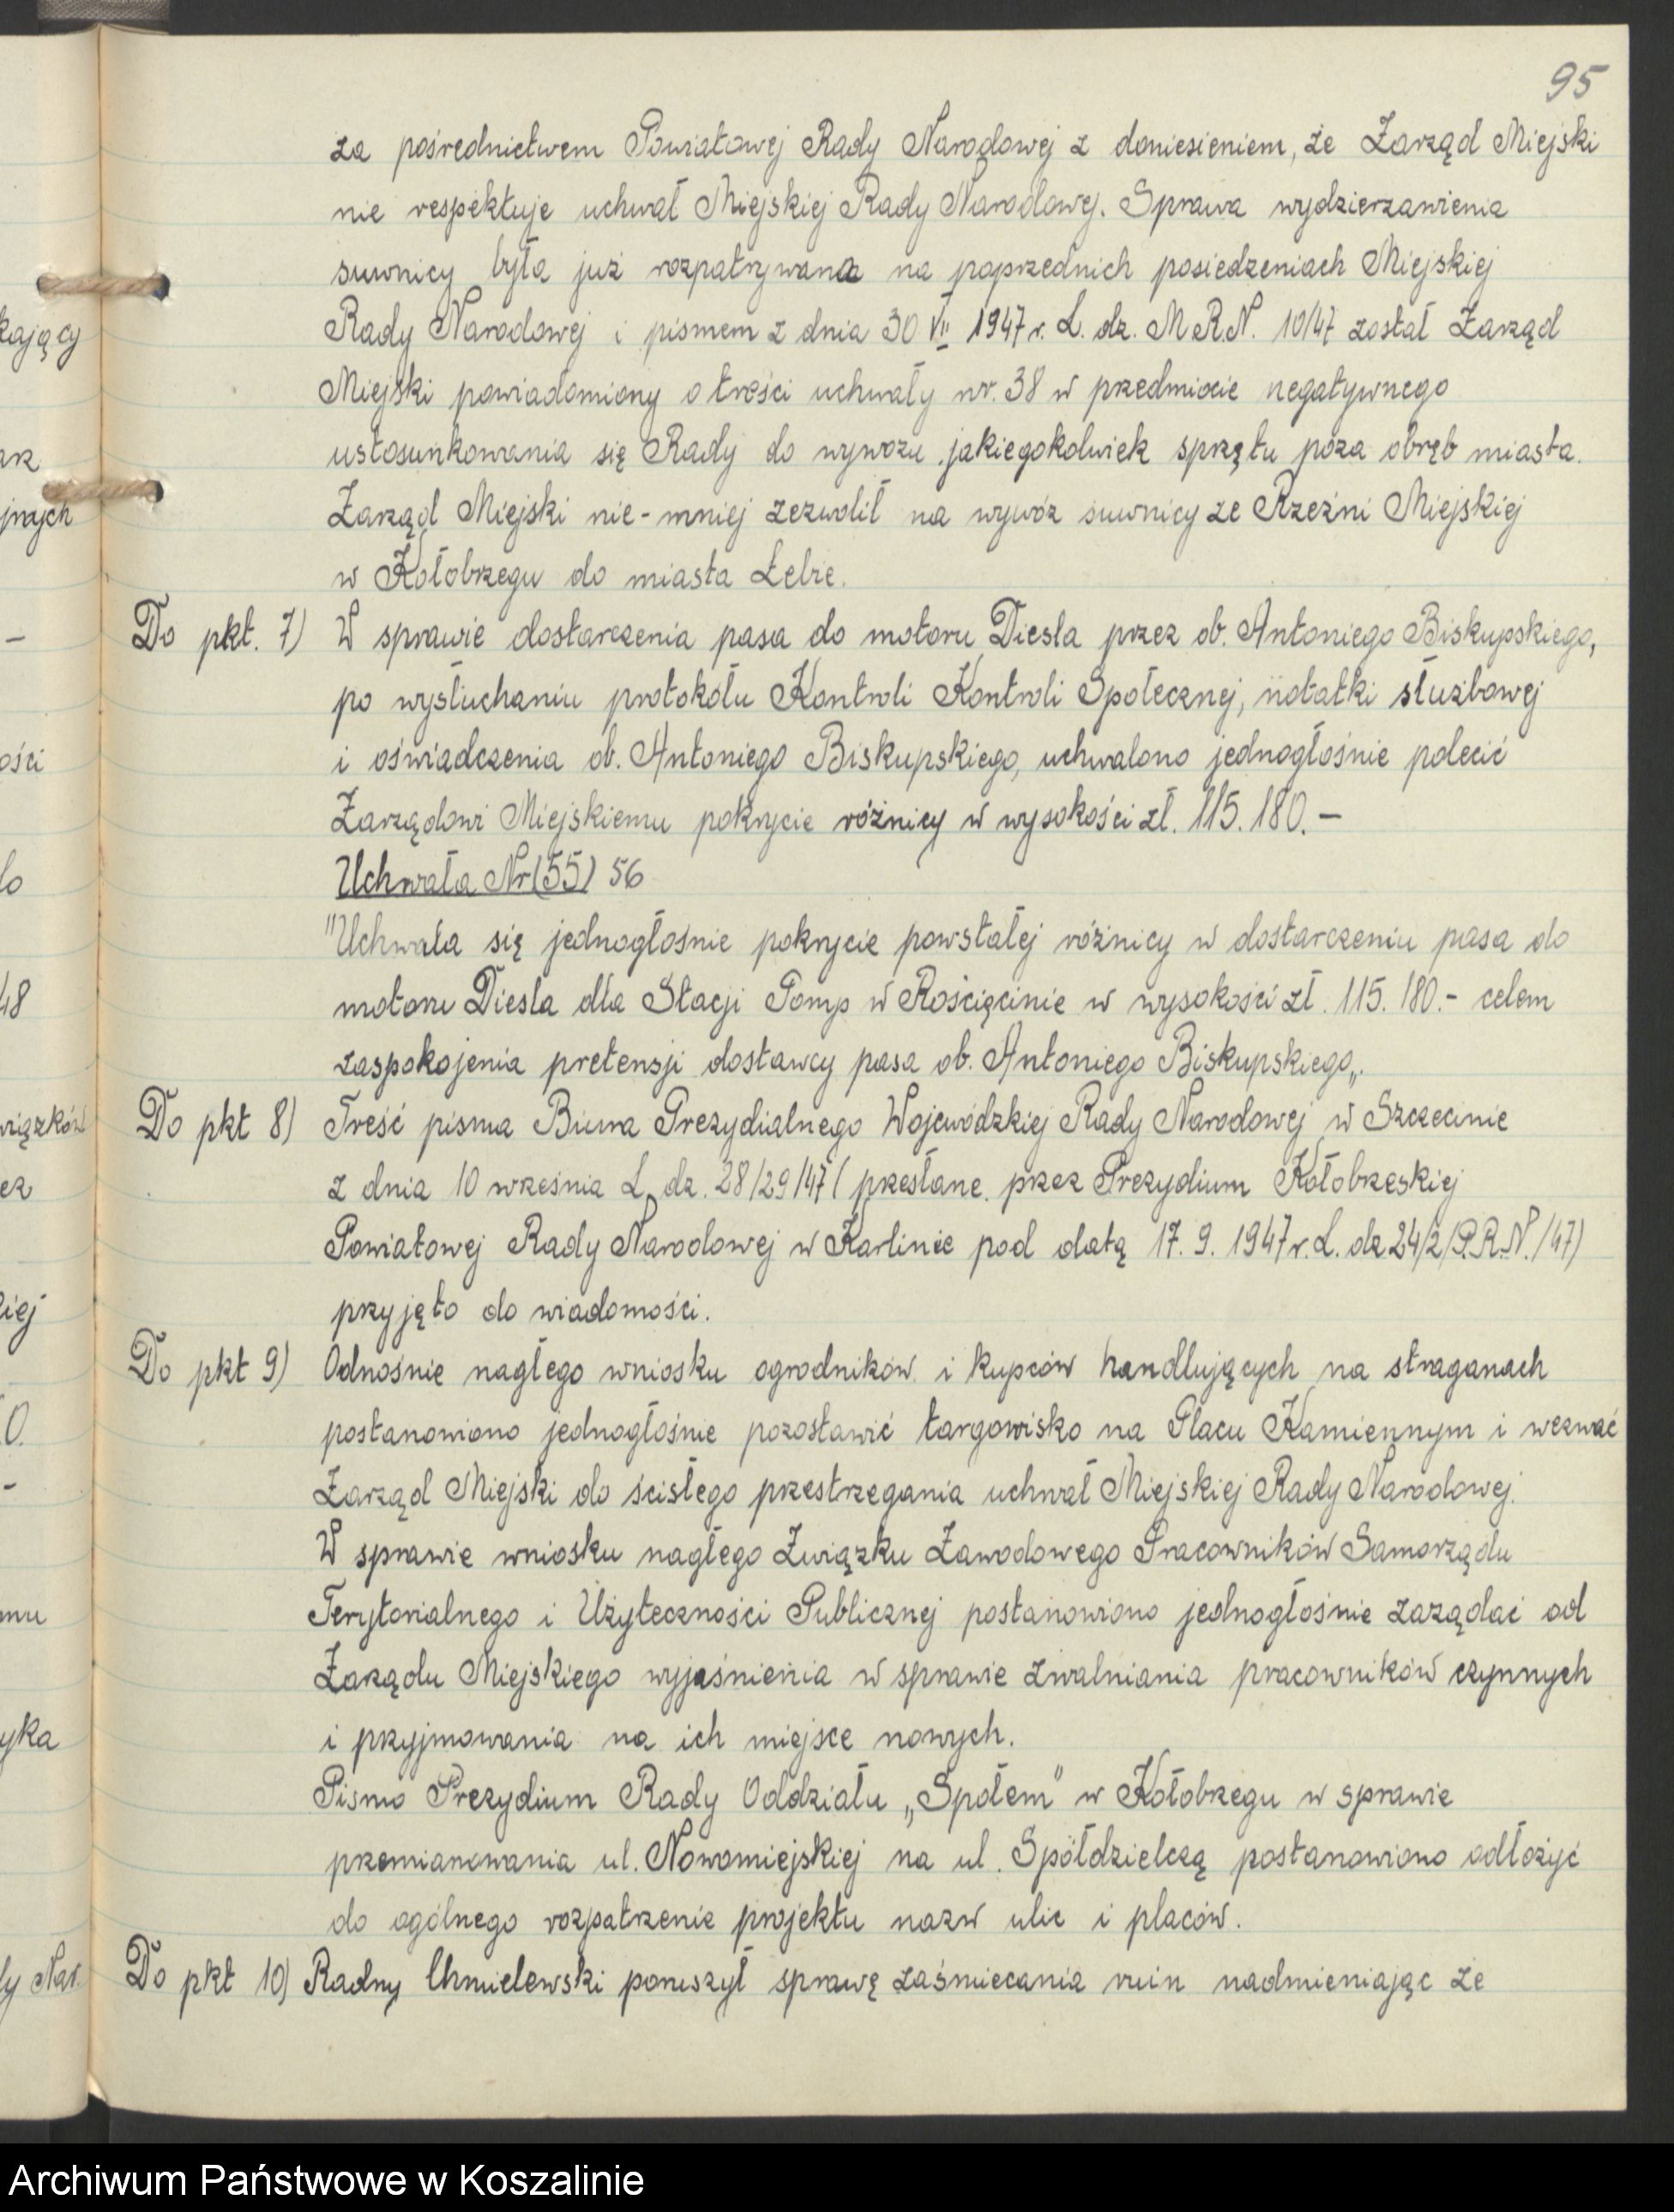 95
za pośrednictwem Powiatowej Rady Narodowej z doniesieniem, że Zarząd Miejski
nie respektuje uchwał Miejskiej Rady Narodowej. Sprawa wydzierżawienia
suwnicy była już rozpatrywana na poprzednich posiedzeniach Miejskiej
Rady Narodowej i pismem z dnia 30 VII 1947 r. L. dz. M.R.N. 10/47 został Zarząd
Miejski powiadomiony o treści uchwały nr. 38 w przedmiocie negatywnego
ustosunkowania się Rady do wywozu jakiegokolwiek sprzętu poza obręb miasta.
Zarząd Miejski nie-mniej zezwolił na wywóz suwnicy ze Rzeźni Miejskiej
w Kołobrzegu do miasta Łebie.
Do pkt. 7) W sprawie dostarczenia pasa do motoru Diesla przez ob. Antoniego Biskupskiego,
po wysłuchaniu protokółu Kontroli Kontroli Społecznej, notatki służbowej
i oświadczenia ob. Antoniego Biskupskiego, uchwalono jednogłośnie polecić
Zarządowi Miejskiemu pokrycie różnicy w wysokości zł. 115.180.–
Uchwała Nr (55) 56
"Uchwala się jednogłośnie pokrycie powstałej różnicy w dostarczeniu pasa do
motoru Diesla dla Stacji Pomp w Rościęcinie w wysokości zł. 115.180.– celem
zaspokojenia pretensji dostawcy pasa ob. Antoniego Biskupskiego„.
Do pkt 8) Treść pisma Biura Prezydialnego Wojewódzkiej Rady Narodowej w Szczecinie
z dnia 10 września L. dz. 28/29/47 ( przesłane przez Prezydium Kołobrzeskiej
Powiatowej Rady Narodowej w Karlinie pod datą 17. 9. 1947 r. L. dz 24/2/P.R.N./47)
przyjęto do wiadomości.
Do pkt 9) Odnośnie nagłego wniosku ogrodników i kupców handlujących na straganach
postanowiono jednogłośnie pozostawić targowisko na Placu Kamiennym i wezwać
Zarząd Miejski do ścisłego przestrzegania uchwał Miejskiej Rady Narodowej.
W sprawie wniosku nagłego Związku Zawodowego Pracowników Samorządu
Terytorialnego i Użyteczności Publicznej postanowiono jednogłośnie zażądać od
Zarządu Miejskiego wyjaśnienia w sprawie zwalniania pracowników czynnych
i przyjmowania na ich miejsce nowych.
Pismo Prezydium Rady Oddziału „Społem" w Kołobrzegu w sprawie
przemianowania ul. Nowomiejskiej na ul. Spółdzielczą postanowiono odłożyć
do ogólnego rozpatrzenia projektu nazw ulic i placów.
Do pkt 10) Radny Chmielewski poruszył sprawę zaśmiecania ruin nadmieniając że
Archiwum Państwowe w Koszalinie